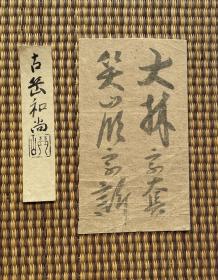 大林宗套
笑嶺宗訢
古岳和尚